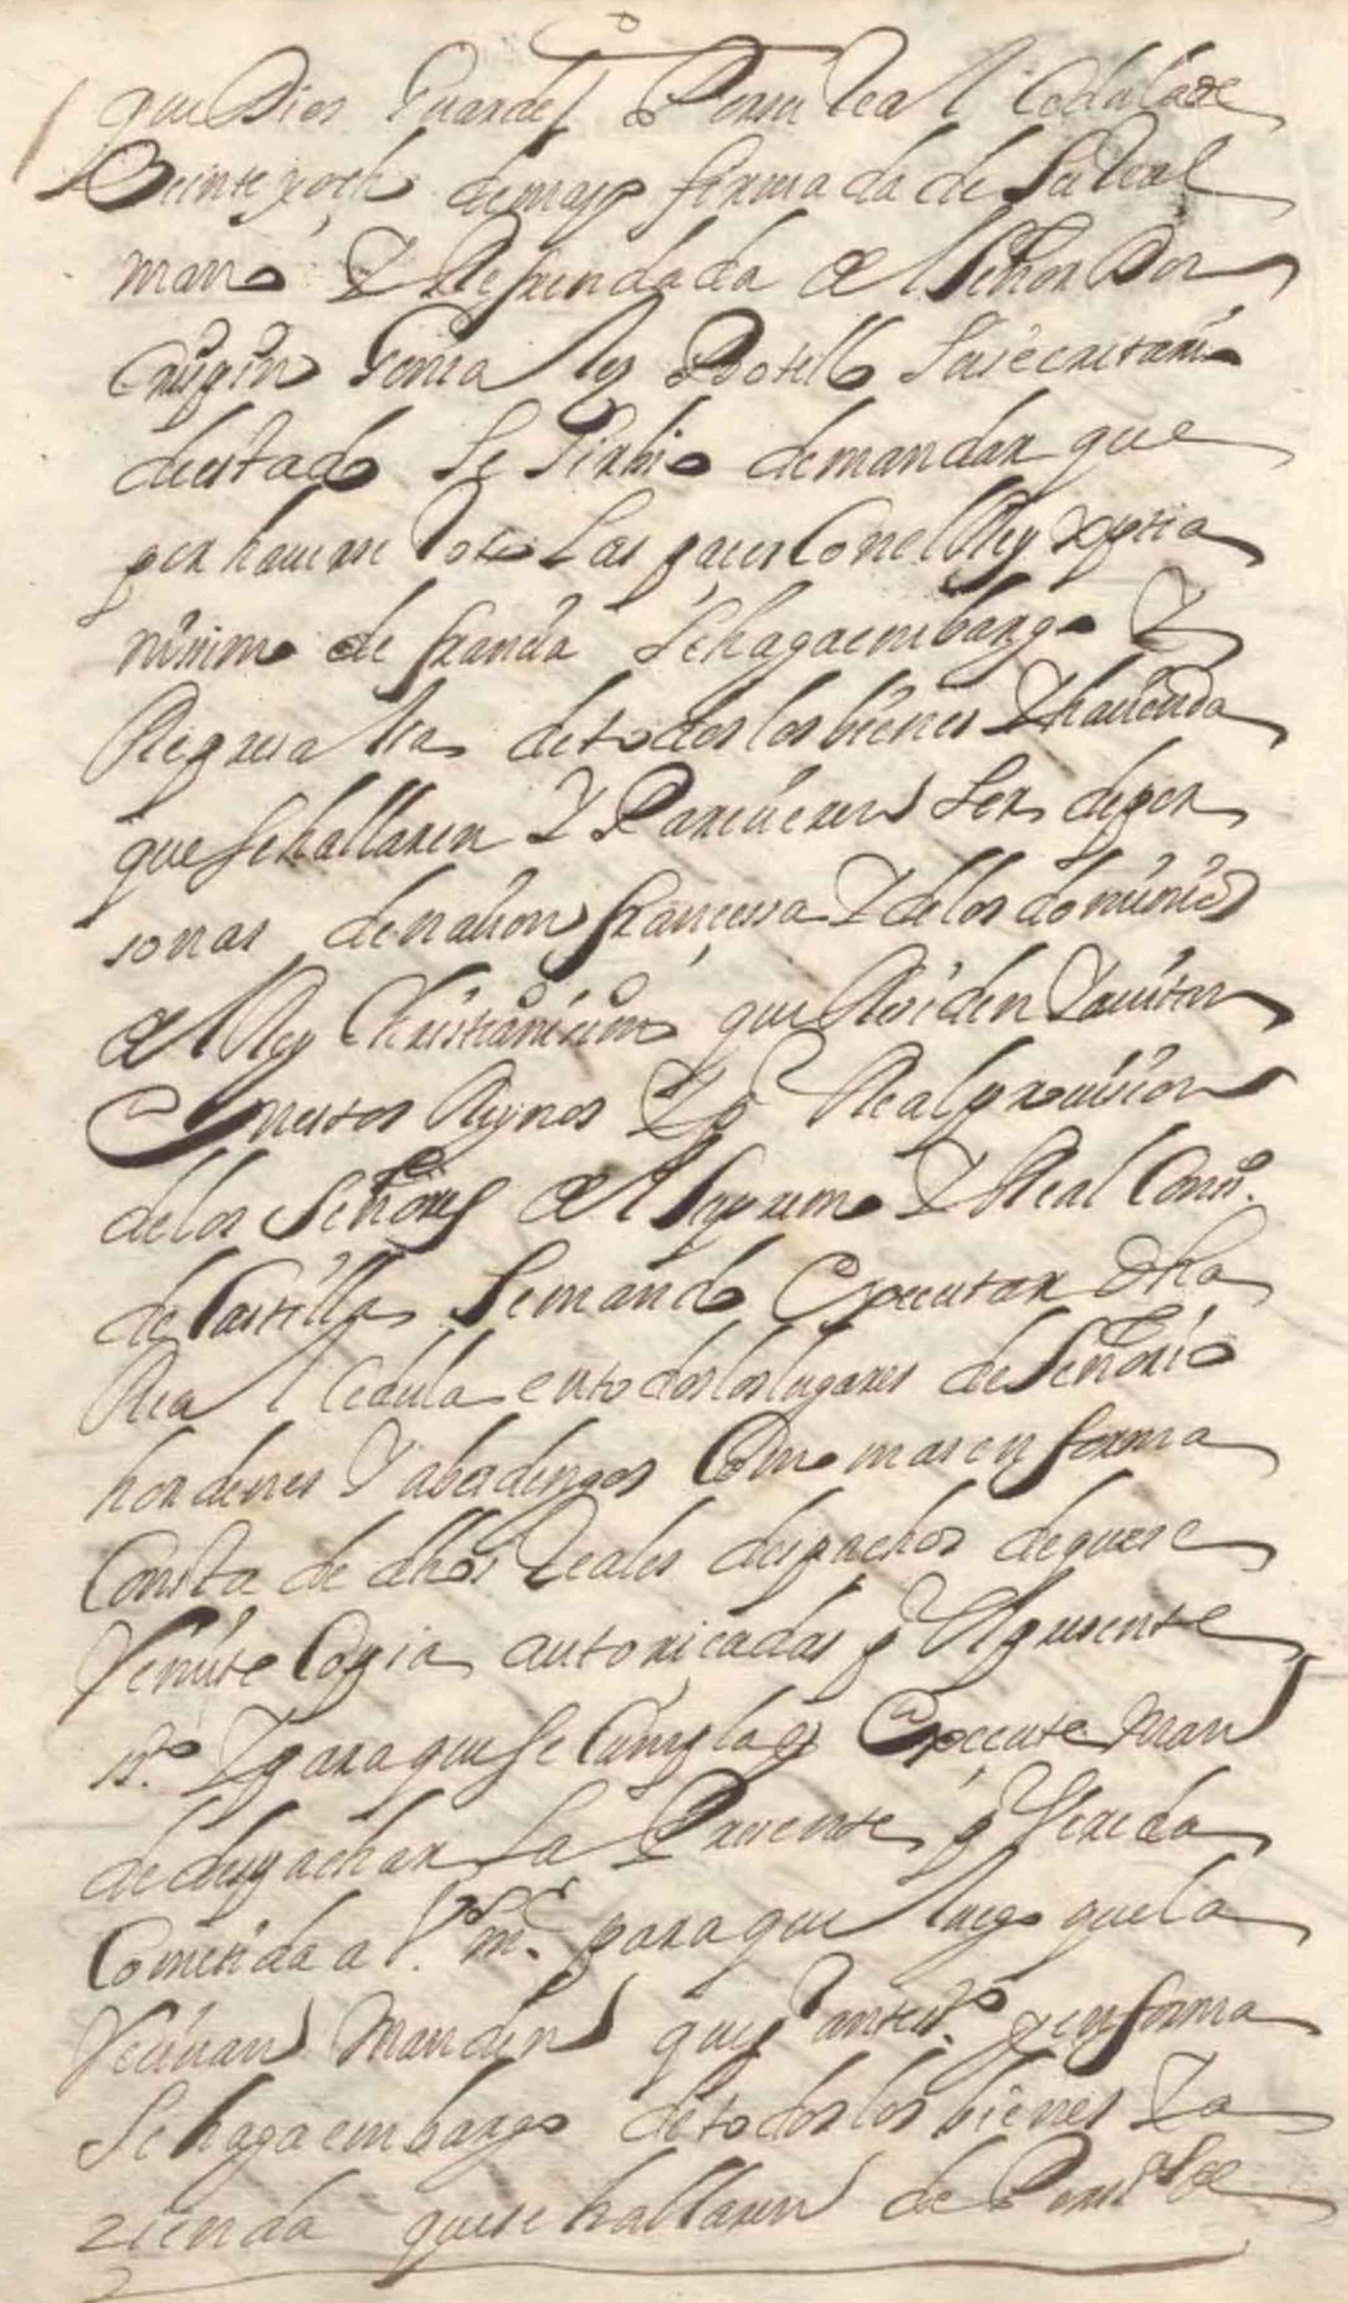 que Dios Guarde, Por su Real Cedula de
Beinte y ocho de mayo firmada de Su Real
mano Y Refrendada del Señor Don
Crispin Gonzalez Botello Su secretario
de estado Se Sirbio de mandar que
por hauerse Roto Las pazes Con el Rey xptia
nisimo de francia Se haga embargo Y
Represalia de todos los bienes Y hacienda
que se hallaren Y Parecieren Ser de per
sonas de nacion francessa Y de los dominios
del Rey Christianisimo que Residen Y auitan
En estos Reynos Y Por Real prouision
de los Señores del Supremo Y Real Consº.
de Castilla Se mando Executar dha
Real Cedula en todos los lugares de Señorio
hordenes Y abadengos Como mas en forma
Consta de dhos Reales despachos de que se
Remite Copia autoricada por El presente
ssº. Y para que se Cumpla y Execute man
de despachar La Presente por Vereda
Cometida a Vmd. para que luego que la
Reciuan Manden que por ante ssº. y en forma
Se haga embargo de todos los bienes Y a
zienda que se hallaren de Personas